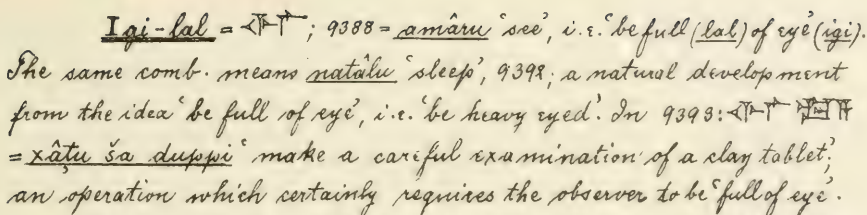 Igi-lal = 𒅆𒇲; 9388 = amâru ‘see’, i.e. ‘be full (lal) of eye’ (igi).
The same comb. means natâlu ‘sleep’, 9392; a natural development
from the idea ‘be full of eye’, i.e. ‘be heavy eyed’. In 9393: 𒅆𒇲
= xâṭu ša duppi ‘make a careful examination of a clay tablet’;
an operation which certainly requires the observer to be ‘full of eye’.